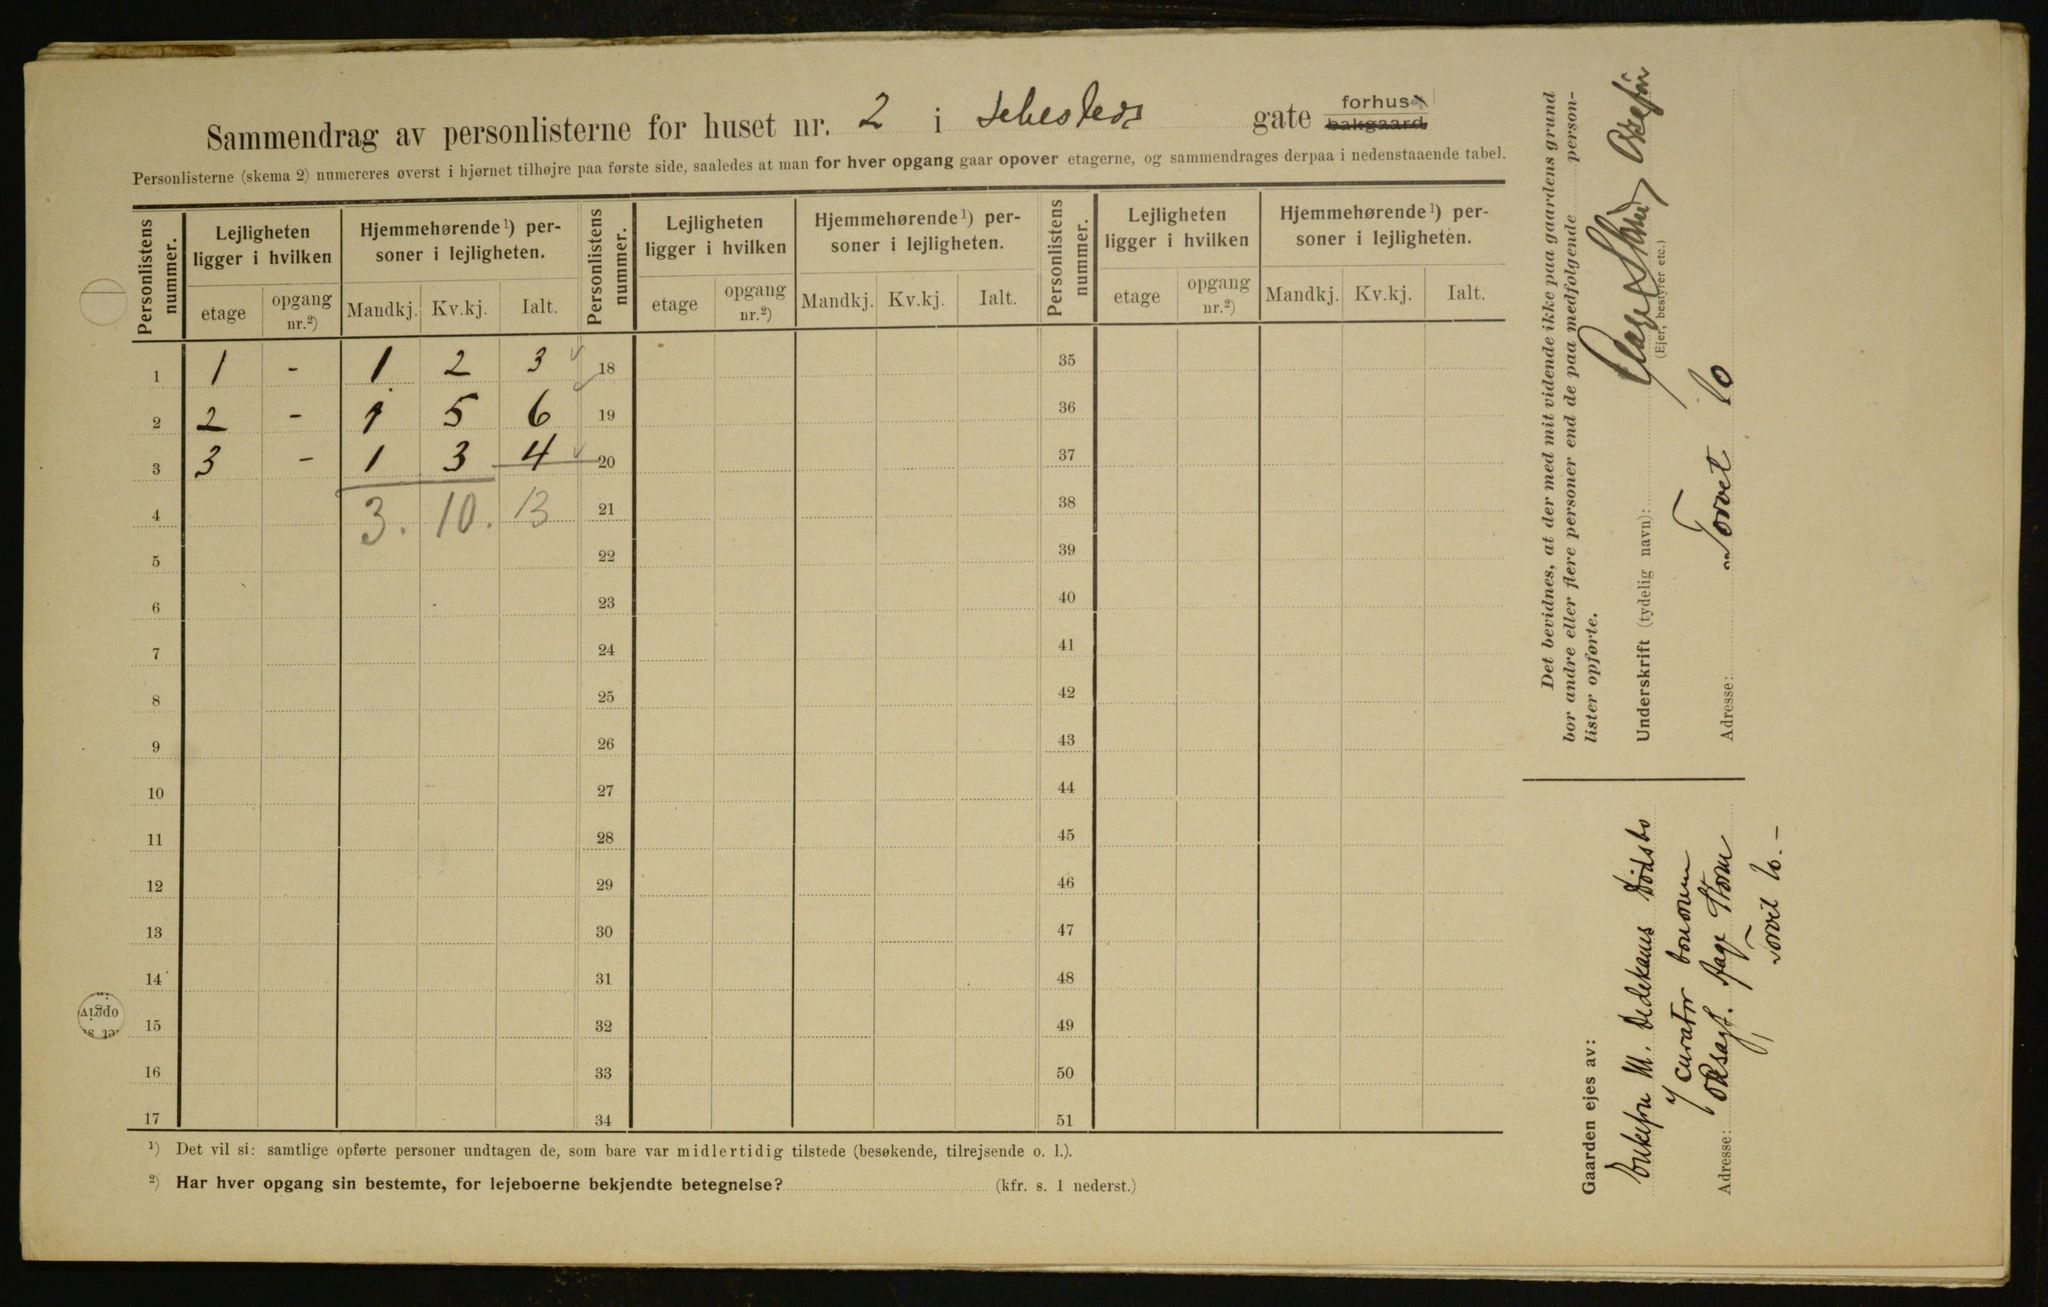 Sammendrag av personlisterne for huset nr. 2 i Sehesteds gate forhus bakgaard
Personlisterne (skema 2) numereres øverst i hjørnet tilhøjre paa første side, saaledes at man for hver opgang gaar opover etagerne, og sammendrages derpaa i nedenstaaende tabel.
Personlistens nummer. Lejligheten ligger i hvilken Hjemmehørende ¹) personer i lejligheten. Personlistens nummer. Lejligheten ligger i hvilken Hjemmehørende ¹) personer i lejligheten. Personlistens nummer. Lejligheten ligger i hvilken Hjemmehørende ¹) personer i lejligheten.
etage opgang nr.²) Mandkj. Kv.kj. Ialt. etage opgang nr.²) Mandkj. Kv.kj. Ialt. etage opgang nr.²) Mandkj. Kv.kj. Ialt.
1 1 - 1 2 3 18 35
2 2 - 1 5 6 19 36
3 3 - 1 3 4 20 37
4 3. 10. 13 21 38
5 22 39
6 23 40
7 24 41
8 25 42
9 26 43
10 27 44
11 28 45
12 29 46
13 30 47
14 31 48
15 32 49
16 33 50
17 34 51
¹) Det vil si: samtlige opførte personer undtagen de, som bare var midlertidig tilstede (besøkende, tilrejsende o. l.).
²) Har hver opgang sin bestemte, for lejeboerne bekjendte betegnelse? (kfr. s. 1 nederst.)
Det bevidnes, at der med mit vidende ikke paa gaardens grund
bor andre eller flere personer end de paa medfølgende person-
lister opførte.
Underskrift (tydelig navn):
(Ejer, bestyrer etc.)
Adresse: Torvet 10
Gaarden ejes av:
Enkefru M. Dedekams Dødsbo
v/ curator bonorum
Torvet 10.-
Adresse:
opgiv